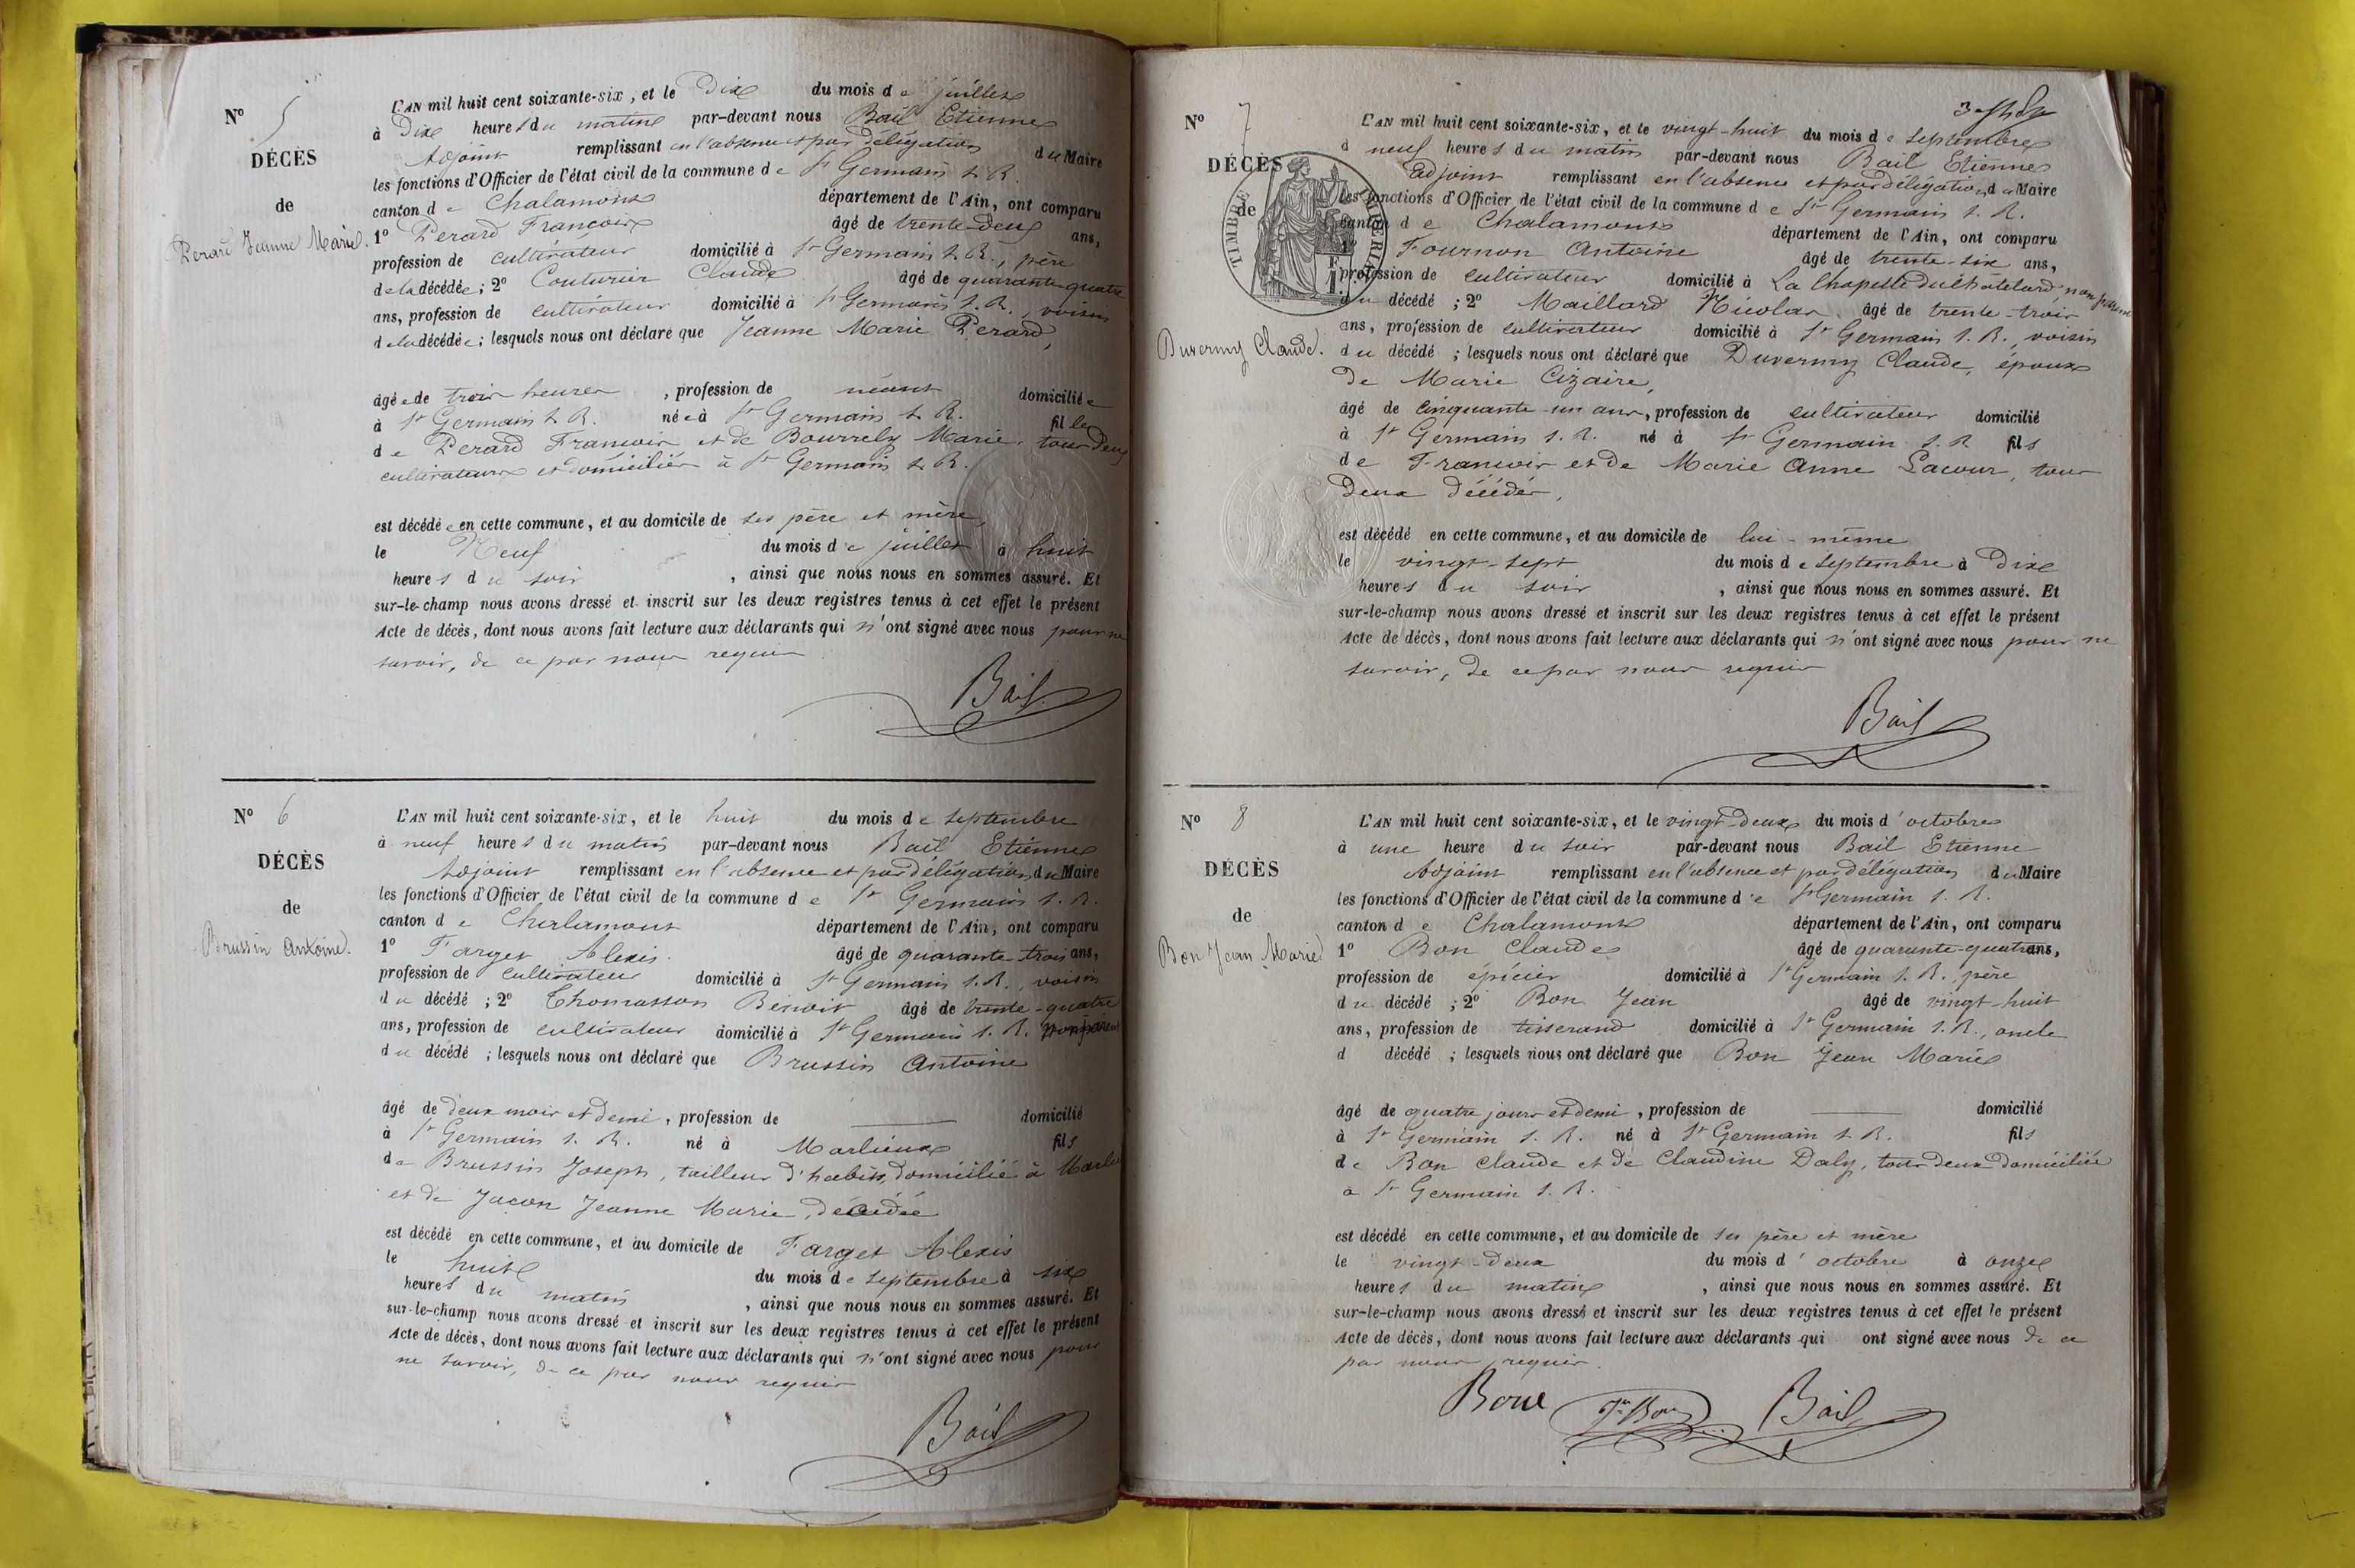 N° 5
DÉCÈS
de
Perard Jeanne Marie.
L'AN mil huit cent soixante-six, et le Dix du mois de juillet
à Dix heures du matin par-devant nous Bail Etienne
Adjoint remplissant en l'absence et par délégation du Maire
les fonctions d'Officier de l'état civil de la commune de St Germain s. R.
canton de Chalamont département de l'Ain, ont comparu
1° Perard François âgé de trente-deux ans,
profession de cultivateur domicilié à St Germain s. R., père
de la décédée; 2° Couturier Claude âgé de quarante quatre
ans, profession de cultivateur domicilié à St Germain s. R., voisin
de la décédée; lesquels nous ont déclaré que Jeanne Marie Perard,
âgée de trois heures, profession de néant domiciliée
à St Germain s. R. née à St Germain s. R. fille
de Perard François et de Bourrely Marie, tous deux
cultivateurs et domiciliés à St Germain s. R.
est décédée en cette commune, et au domicile de ses père et mère,
le Neuf du mois de juillet à huit
heures du soir, ainsi que nous nous en sommes assuré. Et
sur-le-champ nous avons dressé et inscrit sur les deux registres tenus à cet effet le présent
Acte de décès, dont nous avons fait lecture aux déclarants qui n'ont signé avec nous pour ne
savoir, de ce par nous requis
Bail
N° 6
DÉCÈS
de
Brussin Antoine.
L'AN mil huit cent soixante-six, et le huit du mois de septembre
à neuf heures du matin par-devant nous Bail Etienne
Adjoint remplissant en l'absence et par délégation du Maire
les fonctions d'Officier de l'état civil de la commune de St Germain s. R.
canton de Chalamont département de l'Ain, ont comparu
1° Farget Alexis âgé de quarante trois ans,
profession de cultivateur domicilié à St Germain s. R., voisin
du décédé; 2° Thomasson Benoit âgé de trente-quatre
ans, profession de cultivateur domicilié à St Germain s. R. non parent
du décédé; lesquels nous ont déclaré que Brussin Antoine
âgé de deux mois et demi, profession de domicilié
à St Germain s. R. né à Marlieux fils
de Brussin Joseph, tailleur d'habits, domicilié à Marlieux
et de Jacon Jeanne Marie, décédée
est décédé en cette commune, et au domicile de Farget Alexis
le huit du mois de septembre à six
heures du matin, ainsi que nous nous en sommes assuré. Et
sur-le-champ nous avons dressé et inscrit sur les deux registres tenus à cet effet le présent
Acte de décès, dont nous avons fait lecture aux déclarants qui n'ont signé avec nous pour
ne savoir, de ce par nous requis
Bail
N° 7
DÉCÈS
de
Duvermy Claude.
TIMBRE IMPERIAL
L'AN mil huit cent soixante-six, et le vingt-huit du mois de septembre
à neuf heures du matin par-devant nous Bail Etienne
adjoint remplissant en l'absence et par délégation du Maire
les fonctions d'Officier de l'état civil de la commune de St Germain s. R.
canton de Chalamont département de l'Ain, ont comparu
1° Fournon Antoine âgé de trente-six ans,
profession de cultivateur domicilié à La Chapelle du Châtelard, non parent
du décédé; 2° Maillard Nicolas, âgé de trente-trois
ans, profession de cultivateur domicilié à St Germain s. R., voisin
du décédé; lesquels nous ont déclaré que Duvermy Claude, époux
de Marie Cizaire,
âgé de cinquante-un ans, profession de cultivateur domicilié
à St Germain s. R. né à St Germain s. R. fils
de François et de Marie Anne Lacour, tous
deux décédés,
est décédé en cette commune, et au domicile de lui-même
le vingt-sept du mois de septembre à Dix
heures du soir, ainsi que nous nous en sommes assuré. Et
sur-le-champ nous avons dressé et inscrit sur les deux registres tenus à cet effet le présent
Acte de décès, dont nous avons fait lecture aux déclarants qui n'ont signé avec nous pour ne
savoir, de ce par nous requis
Bail
N° 8
DÉCÈS
de
Bon Jean Marie
L'AN mil huit cent soixante-six, et le vingt-deux du mois d'octobre
à une heure du soir par-devant nous Bail Etienne
Adjoint remplissant en l'absence et par délégation du Maire
les fonctions d'Officier de l'état civil de la commune de St Germain s. R.
canton de Chalamont département de l'Ain, ont comparu
1° Bon Claude âgé de quarante-quatre ans,
profession de épicier domicilié à St Germain s. R. père
du décédé; 2° Bon Jean âgé de vingt-huit
ans, profession de tisserand domicilié à St Germain s. R., oncle
d décédé; lesquels nous ont déclaré que Bon Jean Marie
âgé de quatre jours et demi, profession de domicilié
à St Germain s. R. né à St Germain s. R. fils
de Bon Claude et de Claudine Daly, tous deux domiciliés
à St Germain s. R.
est décédé en cette commune, et au domicile de ses père et mère
le vingt-deux du mois d'octobre à onze
heures du matin, ainsi que nous nous en sommes assuré. Et
sur-le-champ nous avons dressé et inscrit sur les deux registres tenus à cet effet le présent
Acte de décès, dont nous avons fait lecture aux déclarants qui ont signé avec nous de ce
par nous requis.
Bon Jn Bon Bail